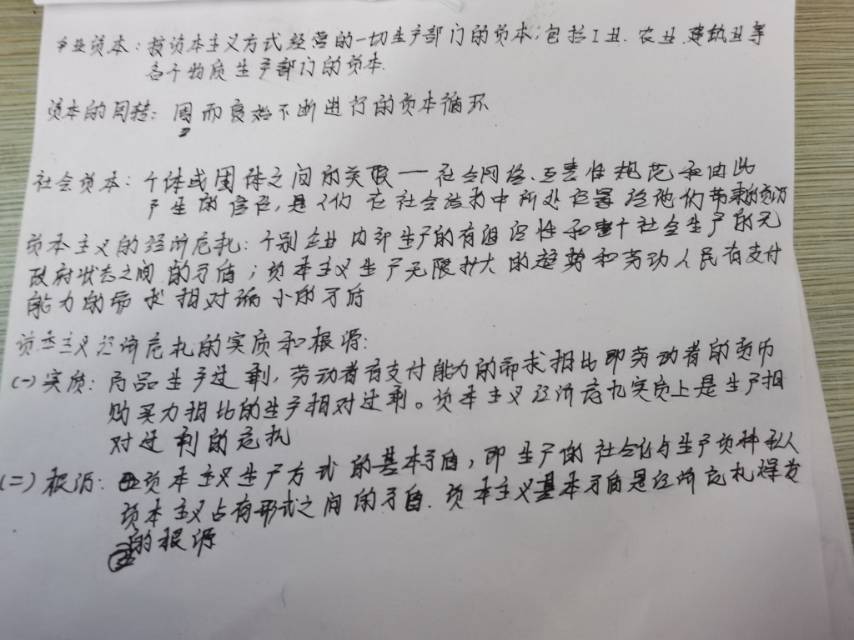 产业资本：按资本主义方式经营的一切生产部门的资本；包括工业、农业、建筑业等
各个物质生产部门的资本.
资本的周转：周而复始不断进行的资本循环
社会资本：个体或团体之间的关联——社会网络、互惠性规范和由此
产生的信任，是人们在社会结构中所处位置给他们带来的资源
资本主义的经济危机：个别企业内部生产的有组织性和整个社会生产的无
政府状态之间的矛盾；资本主义生产无限扩大的趋势和劳动人民有支付
能力的需求相对缩小的矛盾
资本主义经济危机的实质和根源：
(一)实质：商品生产过剩，劳动者有支付能力的需求相比即劳动者的货币
购买力相比的生产相对过剩。资本主义经济危机实质上是生产相
对过剩的危机
(二)根源：资本主义生产方式的基本矛盾，即生产的社会化与生产资料私人
资本主义占有形式之间的矛盾.资本主义基本矛盾是经济危机爆发
的根源